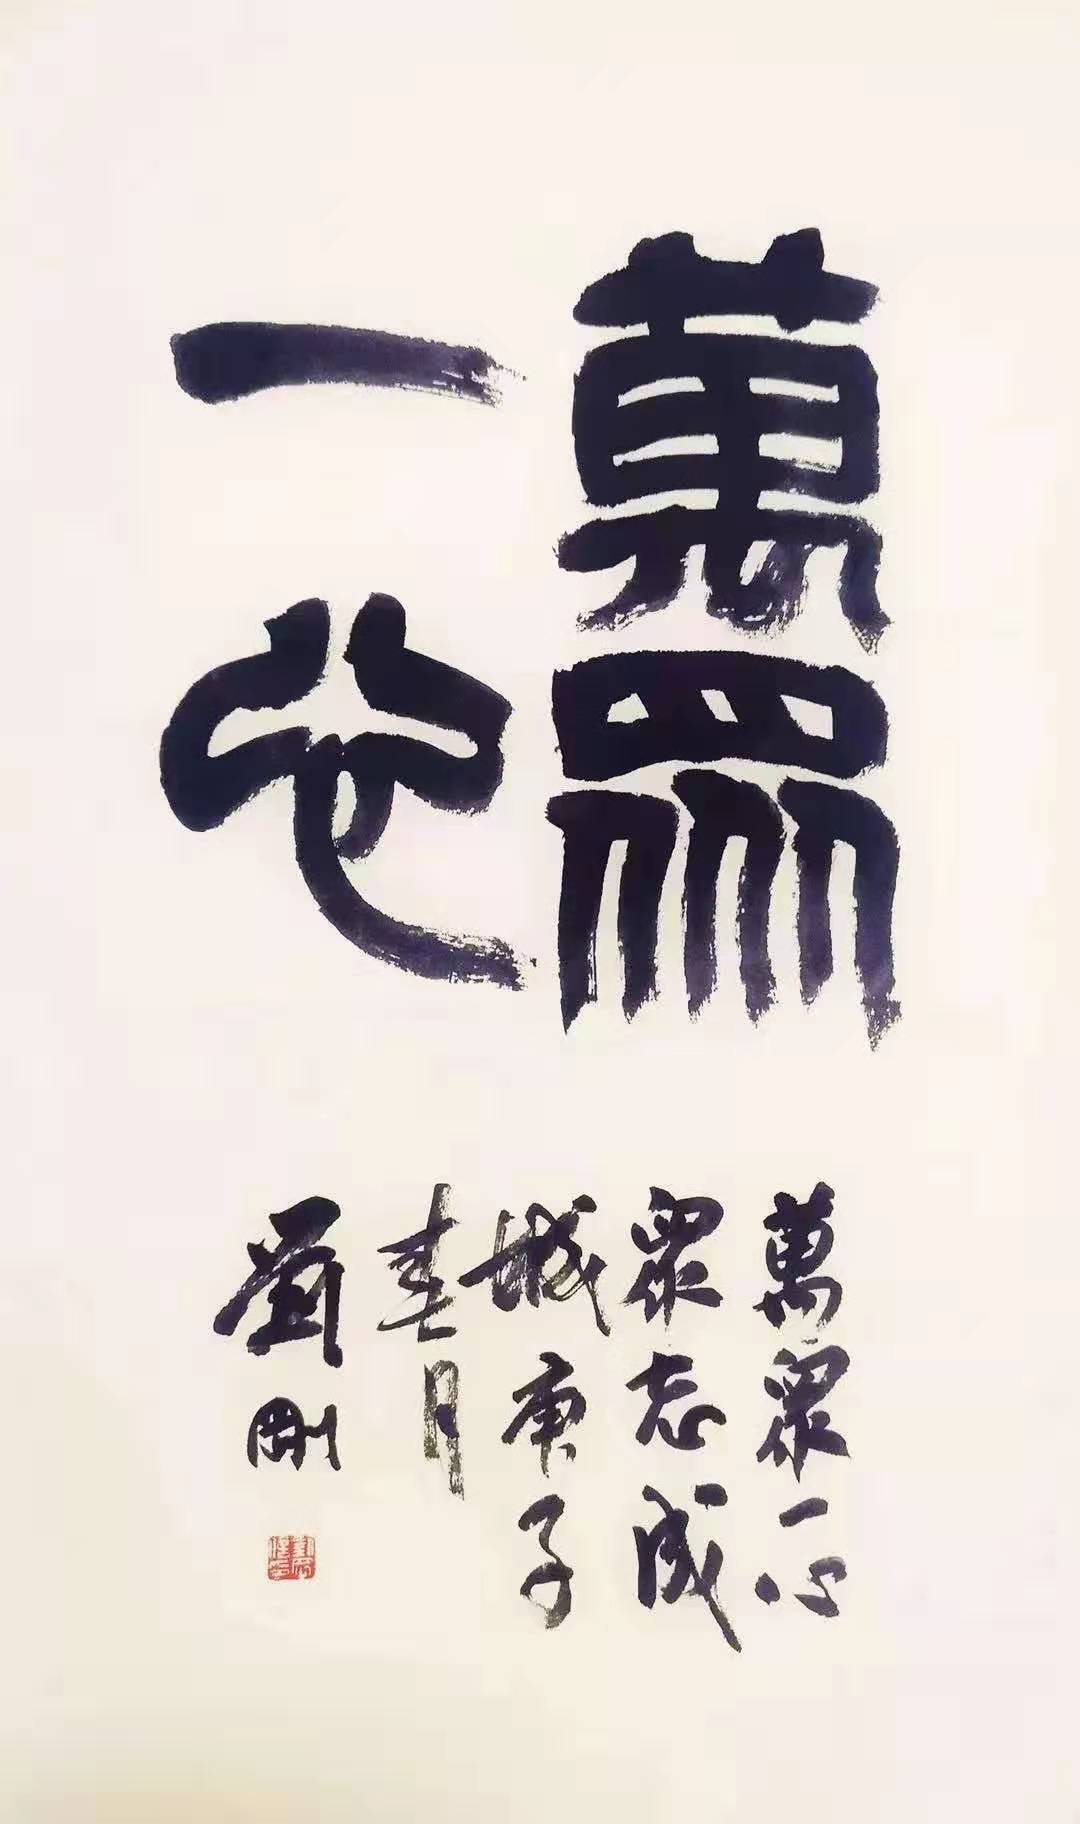 萬眾
一心
萬眾一心
眾志成
城庚子
春月
劉剛